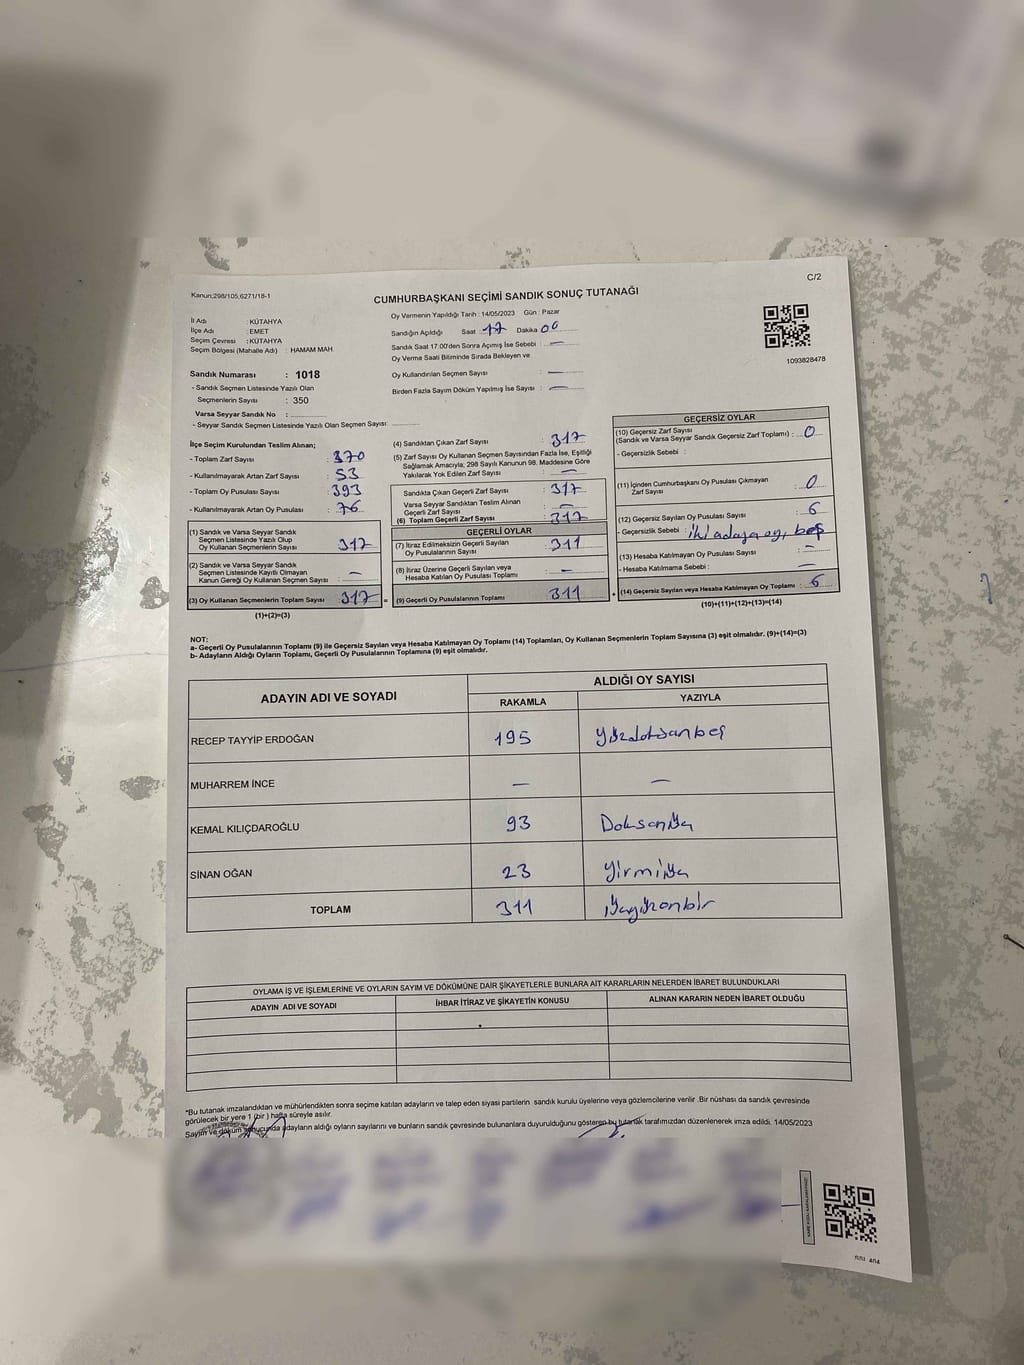 C/2
Kanun;298/105,6271/18-1
CUMHURBAŞKANI SEÇİMİ SANDIK SONUÇ TUTANAĞI
İl Adı : KÜTAHYA
İlçe Adı : EMET
Seçim Çevresi : KÜTAHYA
Seçim Bölgesi (Mahalle Adı) : HAMAM MAH.
Sandık Numarası : 1018
- Sandık Seçmen Listesinde Yazılı Olan
Seçmenlerin Sayısı : 350
Varsa Seyyar Sandık No :
- Seyyar Sandık Seçmen Listesinde Yazılı Olan Seçmen Sayısı:
Oy Vermenin Yapıldığı Tarih : 14/05/2023 Gün : Pazar
Sandığın Açıldığı Saat 17 Dakika 00
Sandık Saat 17.00'den Sonra Açımış İse Sebebi : —
Oy Verme Saati Bitiminde Sırada Bekleyen ve
Oy Kullandırılan Seçmen Sayısı : —
Birden Fazla Sayım Döküm Yapılmış İse Sayısı : —
1093828478
İlçe Seçim Kurulundan Teslim Alınan;
- Toplam Zarf Sayısı : 370
- Kullanılmayarak Artan Zarf Sayısı : 53
- Toplam Oy Pusulası Sayısı : 393
- Kullanılmayarak Artan Oy Pusulası : 76
(1) Sandık ve Varsa Seyyar Sandık
Seçmen Listesinde Yazılı Olup
Oy Kullanan Seçmenlerin Sayısı : 317
(2) Sandık ve Varsa Seyyar Sandık
Seçmen Listesinde Kayıtlı Olmayan
Kanun Gereği Oy Kullanan Seçmen Sayısı : —
(3) Oy Kullanan Seçmenlerin Toplam Sayısı : 317 =
(1)+(2)=(3)
(4) Sandıktan Çıkan Zarf Sayısı : 317
(5) Zarf Sayısı Oy Kullanan Seçmen Sayısından Fazla İse, Eşitliği
Sağlamak Amacıyla, 298 Sayılı Kanunun 98. Maddesine Göre
Yakılarak Yok Edilen Zarf Sayısı : —
Sandıkta Çıkan Geçerli Zarf Sayısı : 317
Varsa Seyyar Sandıktan Teslim Alınan
Geçerli Zarf Sayısı : —
(6) Toplam Geçerli Zarf Sayısı : 317
GEÇERLİ OYLAR
(7) İtiraz Edilmeksizin Geçerli Sayılan
Oy Pusulalarının Sayısı : 311
(8) İtiraz Üzerine Geçerli Sayılan veya
Hesaba Katılan Oy Pusulası Toplamı : —
(9) Geçerli Oy Pusulalarının Toplamı : 311 +
GEÇERSİZ OYLAR
(10) Geçersiz Zarf Sayısı
(Sandık ve Varsa Seyyar Sandık Geçersiz Zarf Toplamı) : 0
- Geçersizlik Sebebi :
(11) İçinden Cumhurbaşkanı Oy Pusulası Çıkmayan
Zarf Sayısı : 0
(12) Geçersiz Sayılan Oy Pusulası Sayısı : 6
- Geçersizlik Sebebi : iki adaya oy, boş
(13) Hesaba Katılmayan Oy Pusulası Sayısı : —
- Hesaba Katılmama Sebebi : —
(14) Geçersiz Sayılan veya Hesaba Katılmayan Oy Toplamı : 6
(10)+(11)+(12)+(13)=(14)
NOT:
a- Geçerli Oy Pusulalarının Toplamı (9) ile Geçersiz Sayılan veya Hesaba Katılmayan Oy Toplamı (14) Toplamları, Oy Kullanan Seçmenlerin Toplam Sayısına (3) eşit olmalıdır. (9)+(14)=(3)
b- Adayların Aldığı Oyların Toplamı, Geçerli Oy Pusulalarının Toplamına (9) eşit olmalıdır.
ADAYIN ADI VE SOYADI ALDIĞI OY SAYISI
RAKAMLA YAZIYLA
RECEP TAYYİP ERDOĞAN 195 yüzdoksanbeş
MUHARREM İNCE — —
KEMAL KILIÇDAROĞLU 93 Doksanüç
SİNAN OĞAN 23 yirmiüç
TOPLAM 311 üçyüzonbir
OYLAMA İŞ VE İŞLEMLERİNE VE OYLARIN SAYIM VE DÖKÜMÜNE DAİR ŞİKAYETLERLE BUNLARA AİT KARARLARIN NELERDEN İBARET BULUNDUKLARI
ADAYIN ADI VE SOYADI İHBAR İTİRAZ VE ŞİKAYETİN KONUSU ALINAN KARARIN NEDEN İBARET OLDUĞU
*Bu tutanak imzalandıktan ve mühürlendikten sonra seçime katılan adayların ve talep eden siyasi partilerin sandık kurulu üyelerine veya gözlemcilerine verilir .Bir nüshası da sandık çevresinde
görülecek bir yere 1 (bir ) hafta süreyle asılır.
Sayım ve döküm sonucunda adayların aldığı oyların sayılarını ve bunların sandık çevresinde bulunanlara duyurulduğunu gösteren bu tutanak tarafımızdan düzenlenerek imza edildi. 14/05/2023